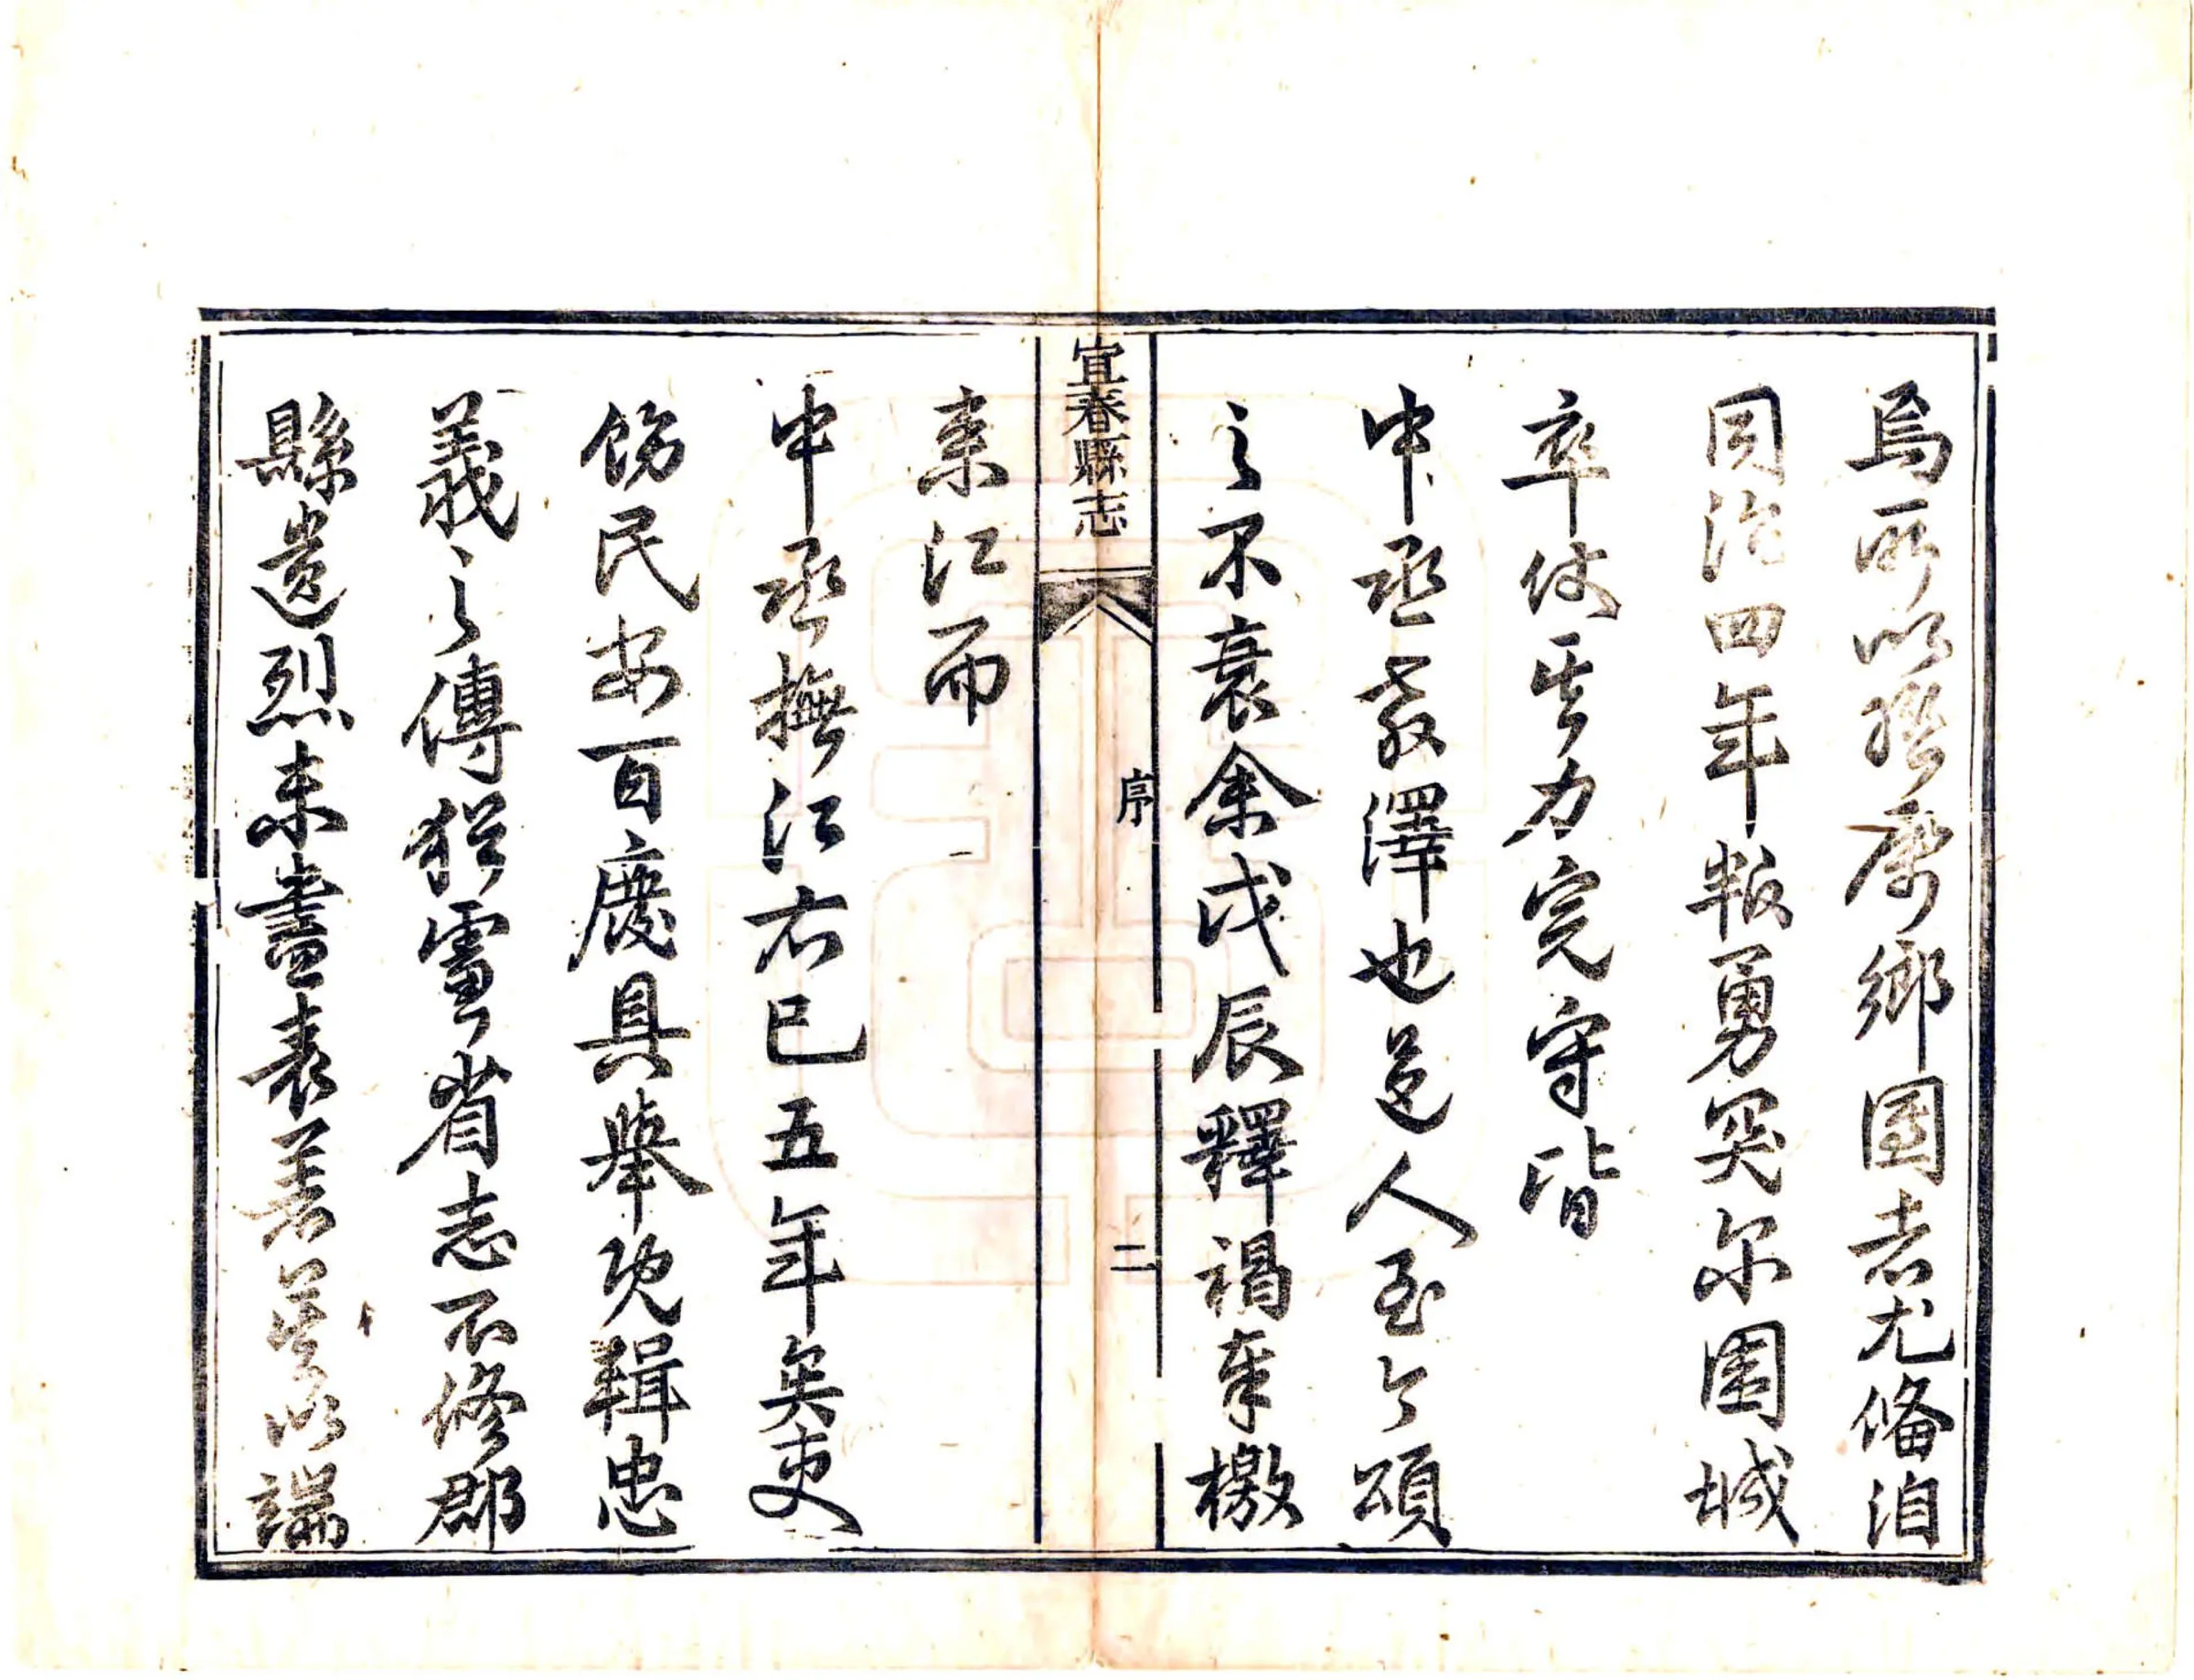 焉所以康鄉國者尤俻洎
同治四年叛勇突尔圍城
卒仗其力完守皆
中丞教澤也邑人至今頌
之不衰余戊辰釋褐奉檄
宜春縣志
序
二
来江而
中丞撫江右已五年矣吏
飭民安百廢具舉既輯忠
義之傳猶省志不修郡
縣遺烈未盡表著莫以端